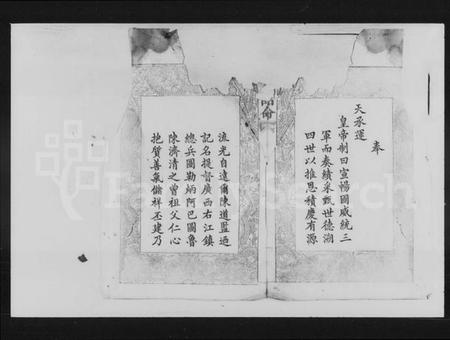 奉
天承運
皇帝制曰宣暢國威統三
軍而奏績采甄世德溯
四世以推恩積慶有源
流光自遠爾陳道監迺
記名提督廣西右江鎮
總兵圖勒炳阿巴圖魯
陳濟清之曾祖父仁心
抱質善氣儲祥丕建乃
誥命